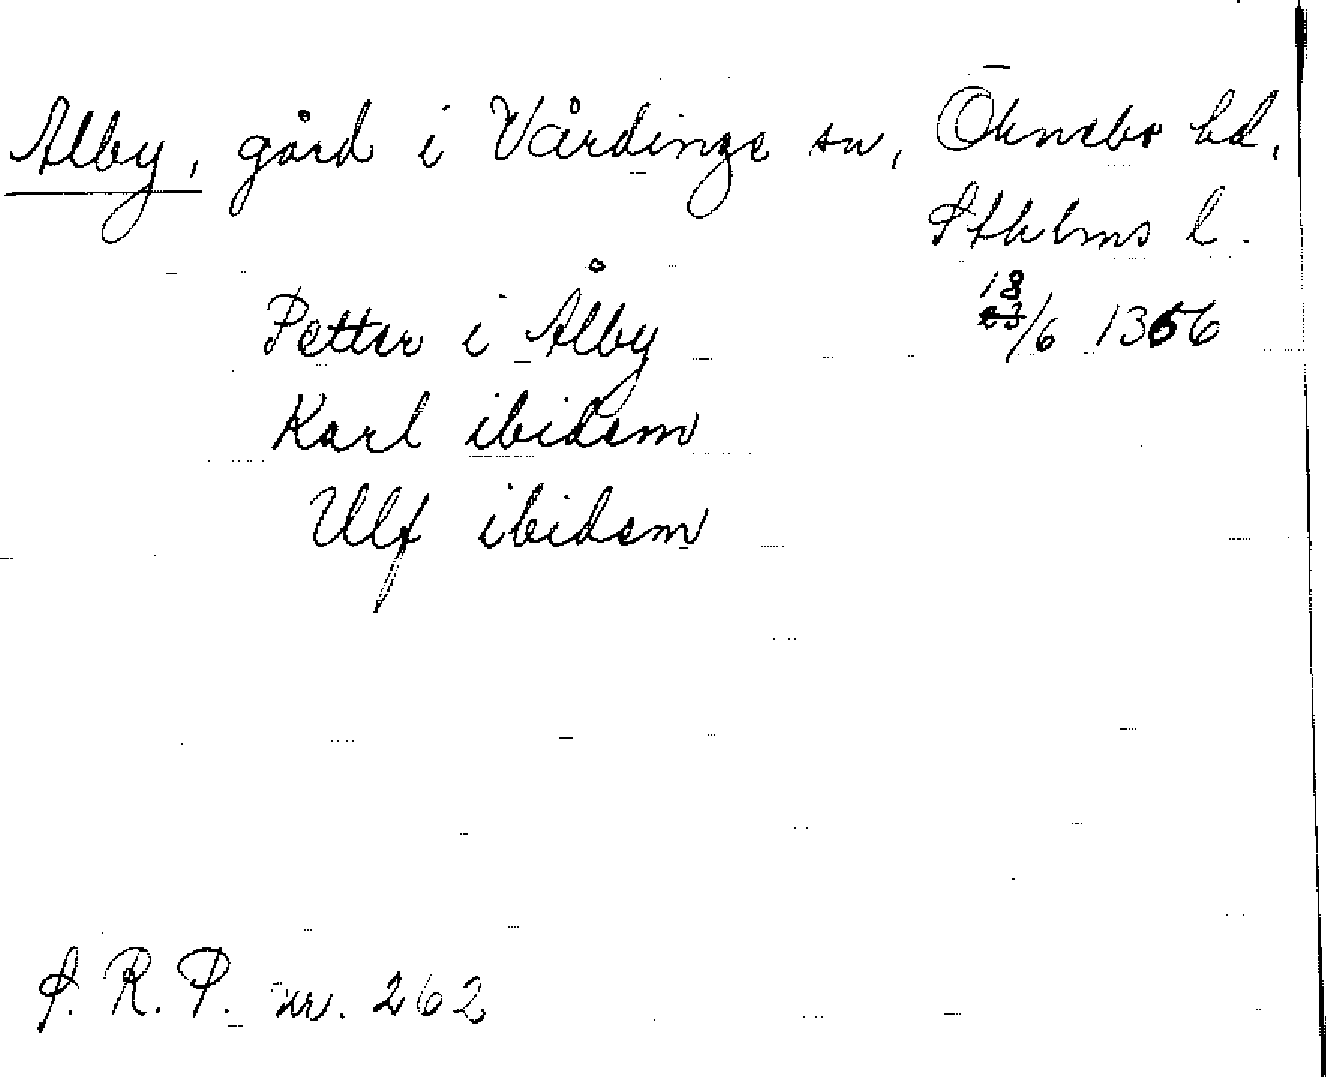 Alby, gård i Vårdinge sn, Öknebo hd,
Sthlms l.
Petter i Ålby 18/6 1356
Karl ibidem
Ulf ibidem
S. R. P. nr. 262